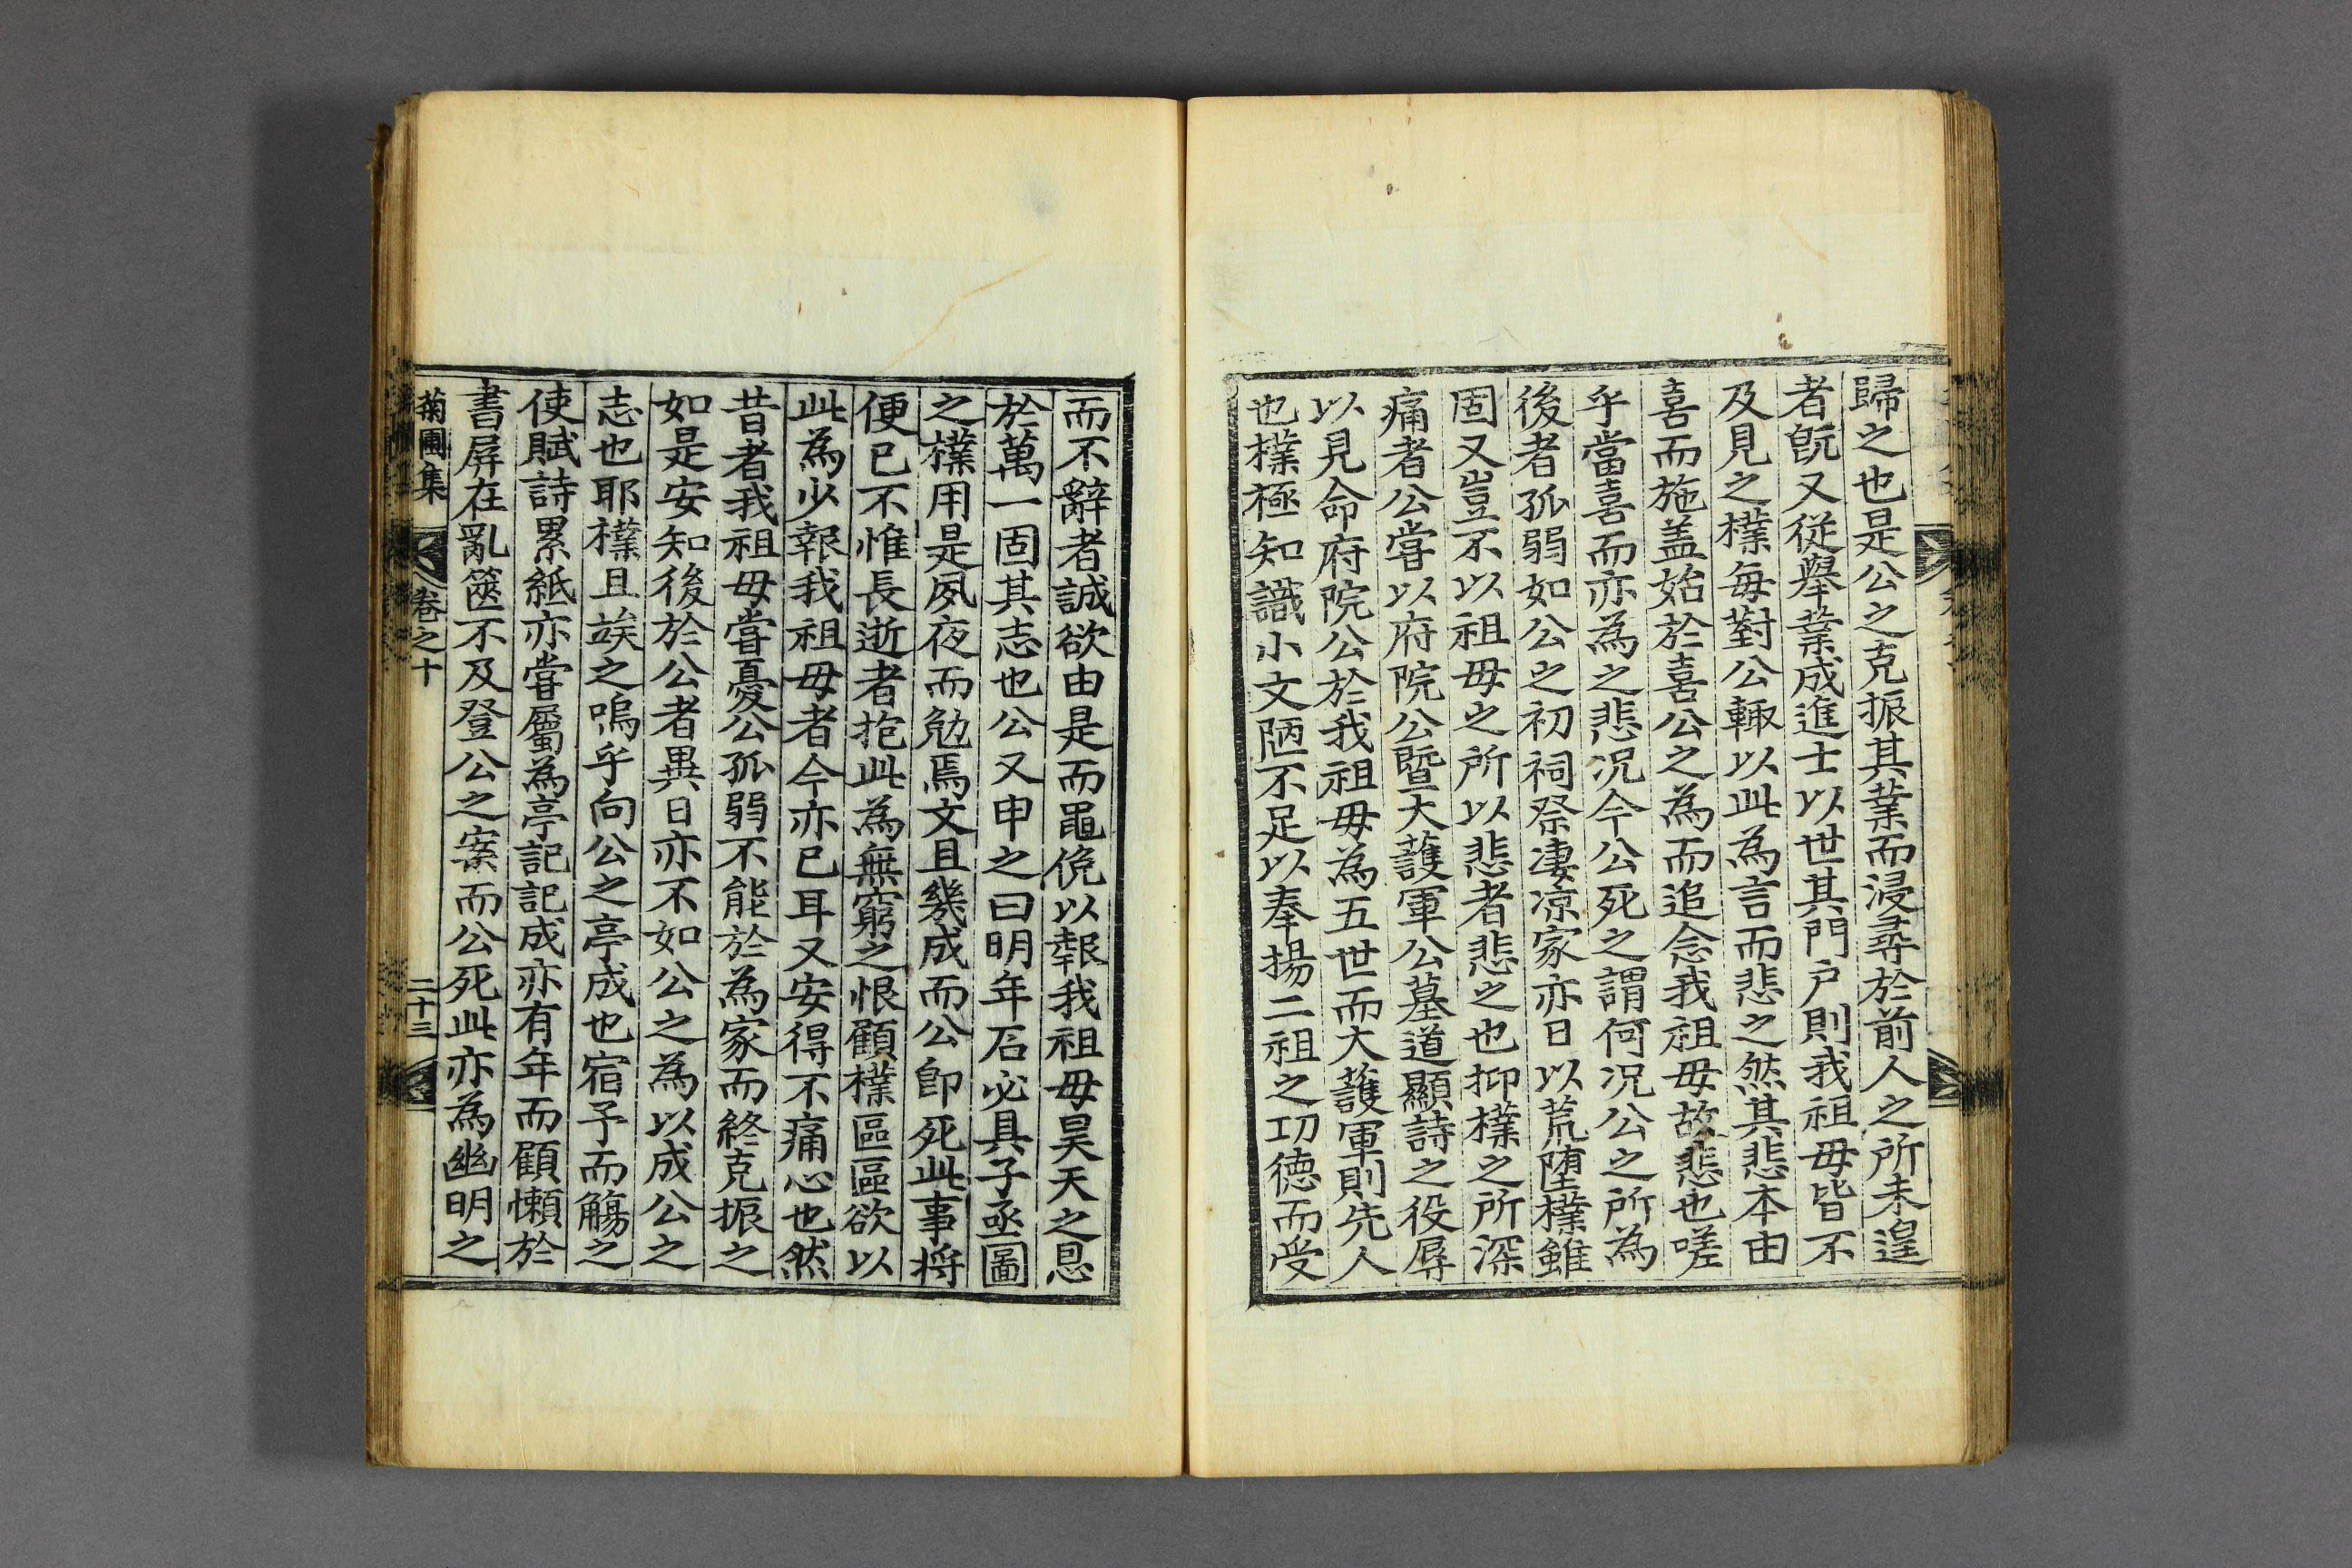 歸之也是公之克振其業而浸尋於前人之所未遑
者旣又從擧業成進士以世其門戶則我祖母皆不
及見之樸每對公輙以此為言而悲之然其悲本由
喜而施盖始於喜公之為而追念我祖母故悲也嗟
乎當喜而亦為之悲况今公死之謂何况公之所為
後者孤弱如公之初祠祭凄凉家亦日以荒墮樸雖
固又豈不以祖母之所以悲者悲之也抑樸之所深
痛者公嘗以府院公暨大護軍公墓道顯詩之役辱
以見命府院公於我祖母為五世而大護軍則先人
也樸極知識小文陋不足以奉揚二祖之功德而受
而不辭者誠欲由是而黽俛以報我祖母昊天之恩
於萬一固其志也公又申之曰明年石必具子亟圖
之樸用是夙夜而勉焉文且幾成而公卽死此事將
便已不惟長逝者抱此為無窮之恨顧樸區區欲以
此為少報我祖母者今亦已耳又安得不痛心也然
昔者我祖母嘗憂公孤弱不能於為家而終克振之
如是安知後於公者異日亦不如公之為以成公之
志也耶樸且竢之嗚乎向公之亭成也宿予而觴之
使賦詩累紙亦嘗屬為亭記記成亦有年而顧懶於
書屛在亂篋不及登公之案而公死此亦為幽明之
菊圃集 卷之十 二十三